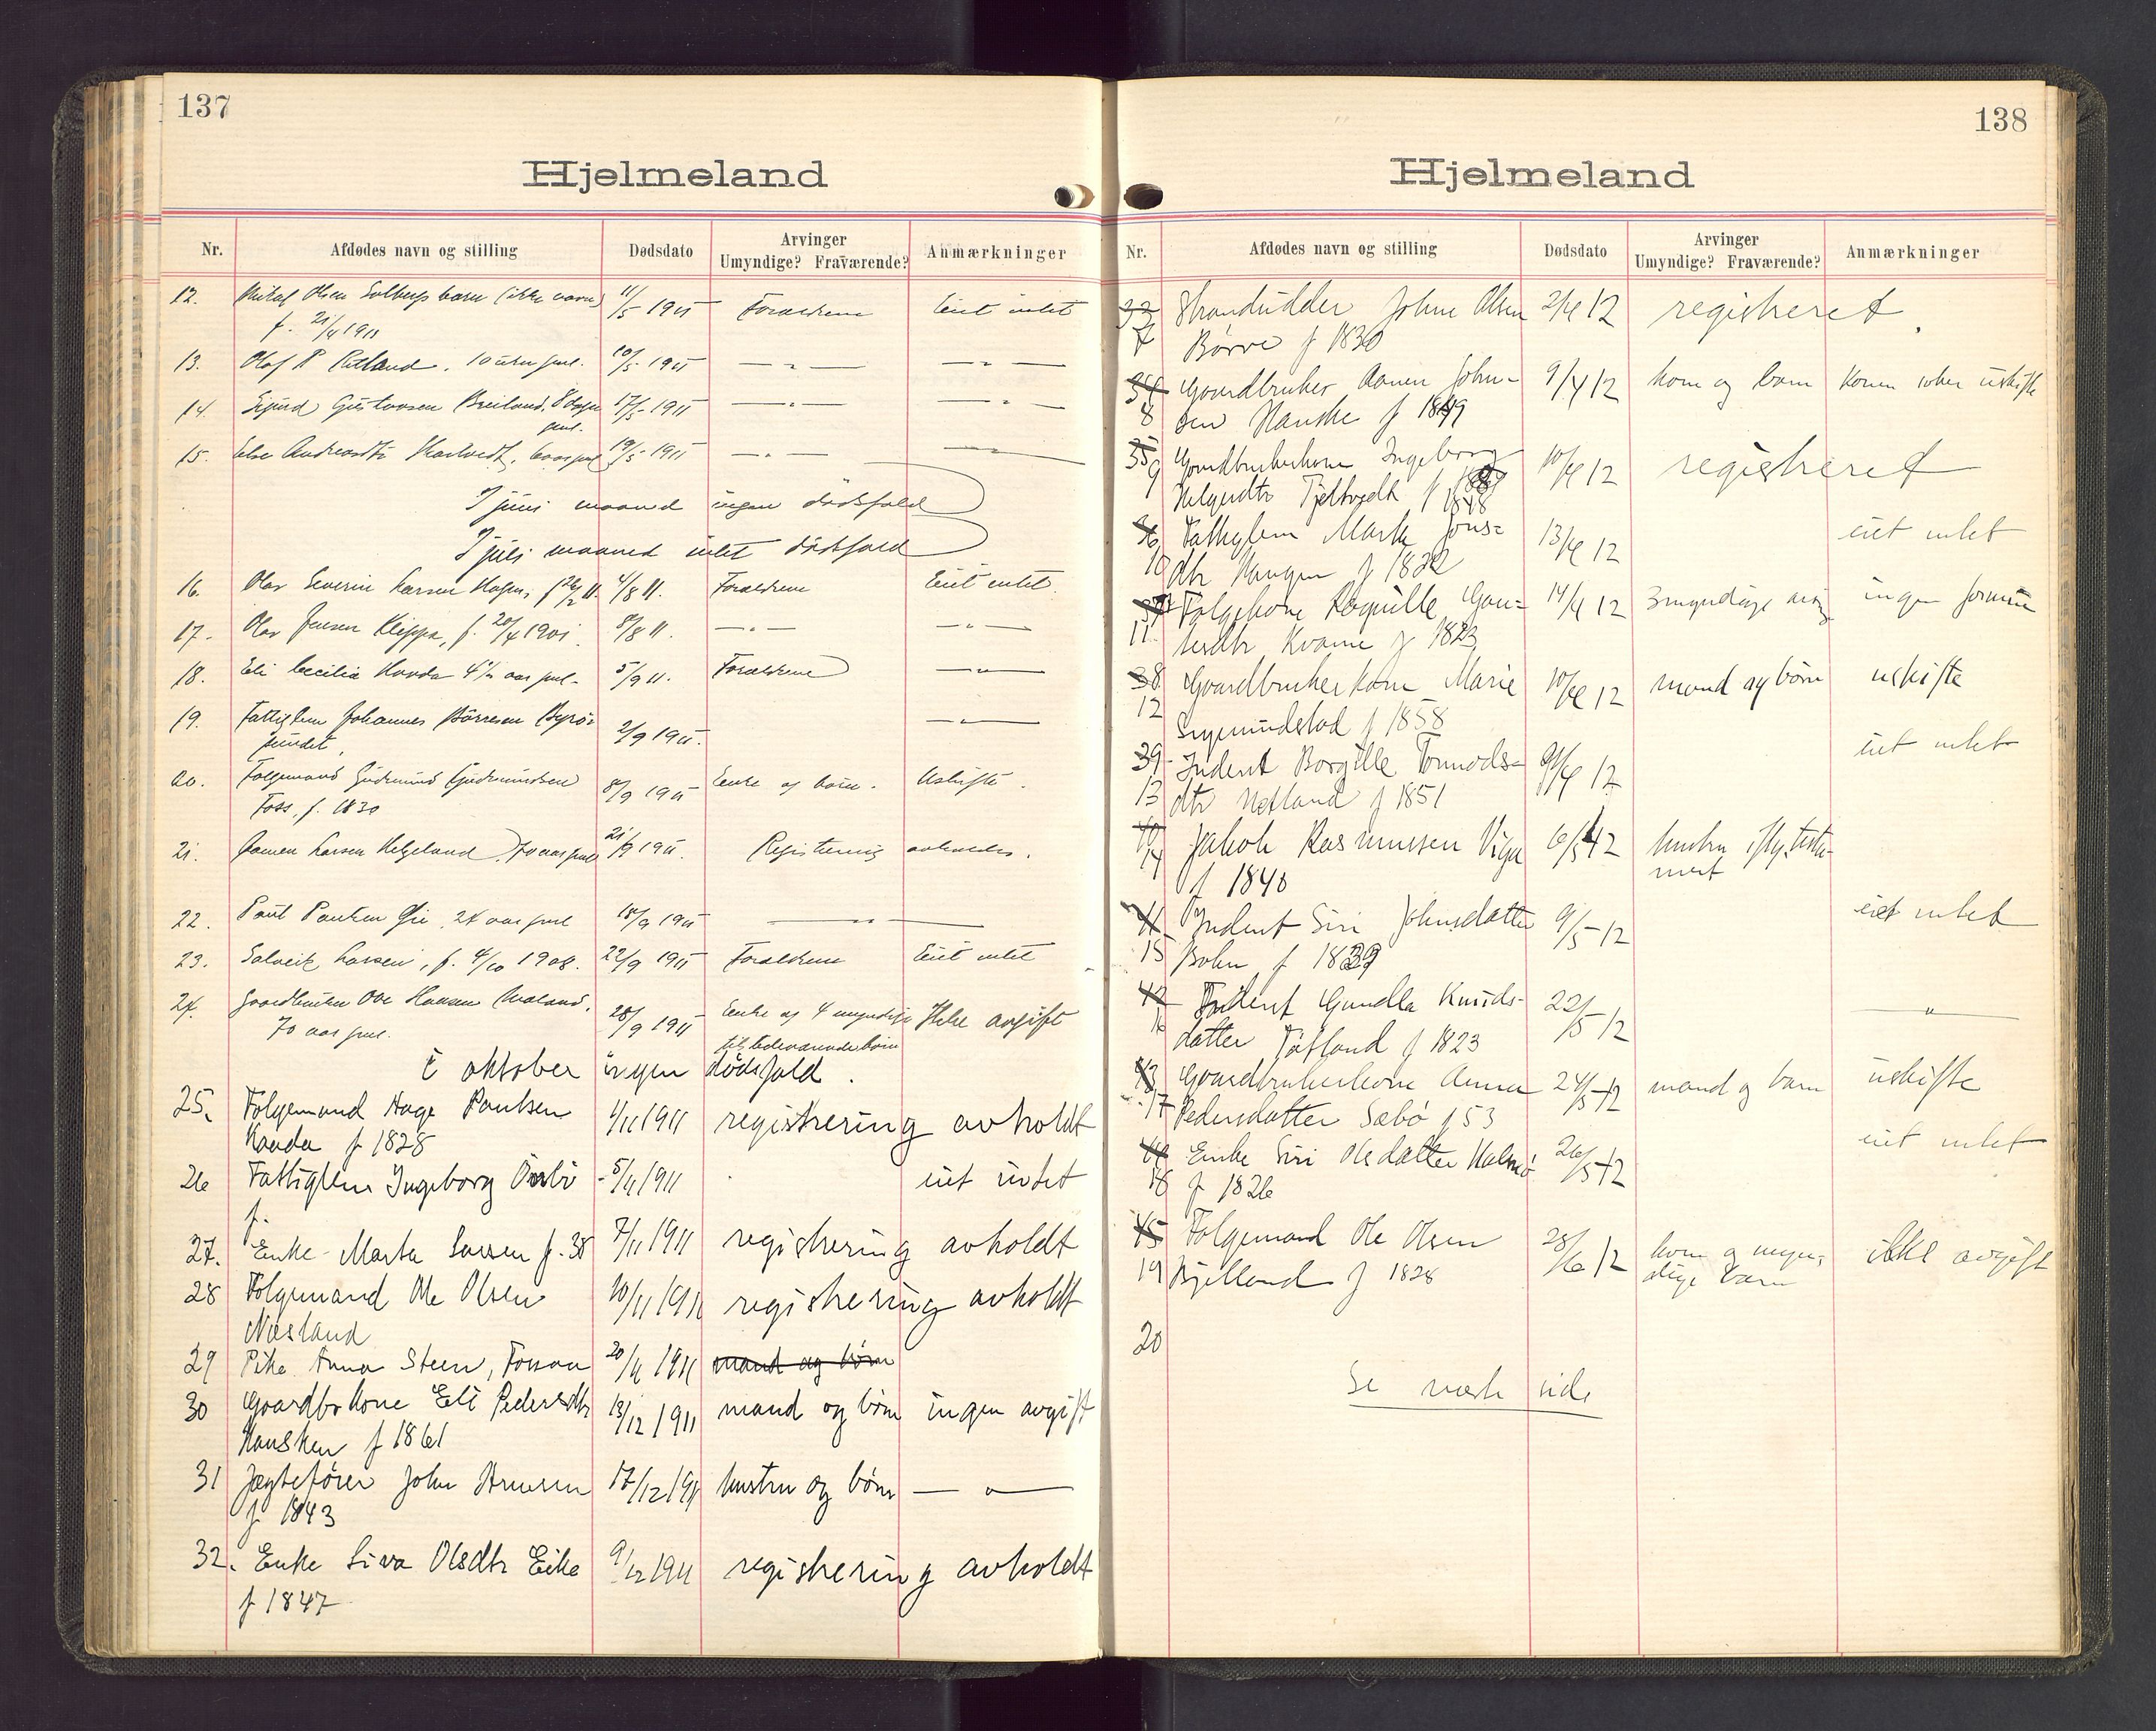 137
Hjelmeland
Nr. Afdødes navn og stilling Dødsdato Arvinger Umyndige? Fraværende? Anmærkninger
12. Olsen Solbergs barn (ikke navn) 11/5 1911 Forældrene Eiet intet
f. 21/4 1911
13. Olaf P Ritland. 10 uker gml. 10/5 1911 — „ — — „ —
14. Sigurd Gustavsen Breiland, 8 dage 17/5 1911 — „ — — „ —
gml.
15. Else Andreasdtr 19/5 1911 — „ —
I juni maaned ingen dødsfald
I juli maaned intet dødsfald
16. Olav Severin Larsen 4/8 11. Forældrene Eiet intet.
17. Olav Jensen Klippa, f. 20/4 1901. 8/8 11. — „ — — „ —
18. Eli Cecilia 4½ aar gml. 5/9 11. Forældrene — „ —
19. Fattiglem Johannes Børresen Byrø- 2/9 1911. — „ —
sundet.
20. Følgemand Gudmund Gudmundsen 8/9 1911 Enke og børn. Uskifte.
Foss, f. 1830
21. Larsen Helgeland, 70 aar gml 21/9 1911. Registrering avholdes.
22. Paul Paulsen 24 aar gml 18/9 1911 — „ —
23. Solveig Larsen, f. 4/10 1908. 22/9 1911 Forældrene Eiet intet
24. Gaardbruker Ove Hansen 28/9 1911 Enke og 4 myndige Ikke avgift
70 aar gml. tilstedeværende børn
I oktober ingen dødsfald.
25. Følgemand Aage Paulsen 4/11 1911 registrering avholdt
f 1828
26 Fattiglem Ingeborg 5/11 1911 eiet intet
f.
27. Enke Marta Larsen f. 38 7/11 1911 registrering avholdt
28 Følgemand Ole Olsen 10/11 1911 registrering avholdt
Næsland
29 Pike Anna Steen, Fossan 20/11 1911 mand og børn
30 Gaardbr kone Eli Pedersdtr 13/12 1911 mand og børn ingen avgift
Hausken f 1861
31 Jægtefører John 17/12 1911 hustru og børn — „ —
f 1843
32. Enke Siva Olsdtr Eike 9/12 1911 registrering avholdt
f 1847
138
Hjelmeland
Nr. Afdødes navn og stilling Dødsdato Arvinger Umyndige? Fraværende? Anmærkninger
33 Strandsidder Johne Olsen 2/4 12 registreret.
7 Børve f 1830
34 Gaardbruker Aanen John- 9/4 12 kone og barn Konen sitter uskifte
8 sen Hauske f 1849
35 Gaardbrukerkone Ingeborg 10/4 12 registreret
9 Helgesdtr f 1848
36 Fattiglem Marta Jons- 13/4 12 eiet intet
10 dtr f 1832
37 Følgekone Ragnille Gau- 14/4 12 3 myndige ingen formue
11. tesdtr Kvame f 1823
38 Gaardbrukerkone Marie 10/4 12 mand og børn uskifte
12 Sigmundstad f 1858
39 Inderst Borgille Tormods- 12 eiet intet
13 dtr Hetland f 1851
40 Jakob Rasmussen Viga 6/5 12 hustru iflg. testa-
14 f 1840 ment
41 Inderst Siri Johnsdatter 9/5 12 eiet intet
15 f 1839
42 Inderst Gundla Knuds- 22/5 12 „
16 datter f 1823
43 Gaardbrukerkone Anna 24/5 12 mand og barn uskifte
17 Pedersdatter Sæbø f 53
44 Enke Siri Olsdatter 26/5 12 eiet intet
18 f 1826
45 Følgemand Ole Olsen 28/6 12 kone og myn- ikke avgift
19 Bjelland f 1828 dige barn
20
Se næste side